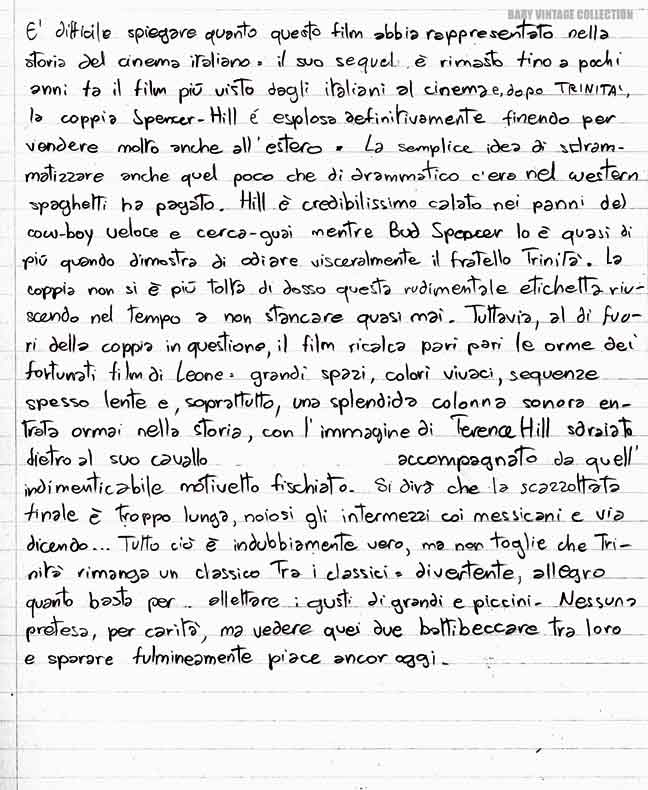 BABY VINTAGE COLLECTION
E' difficile spiegare quanto questo film abbia rappresentato nella
storia del cinema italiano: il suo sequel è rimasto fino a pochi
anni fa il film più visto dagli italiani al cinema e, dopo TRINITA',
la coppia Spencer-Hill é esplosa definitivamente finendo per
vendere molto anche all'estero. La semplice idea di sdram-
matizzare anche quel poco che di drammatico c'era nel western
spaghetti ha pagato. Hill è credibilissimo calato nei panni del
cow-boy veloce e cerca-guai mentre Bud Spencer lo è quasi di
più quando dimostra di odiare visceralmente il fratello Trinità. La
coppia non si è più tolta di dosso questa rudimentale etichetta riu-
scendo nel tempo a non stancare quasi mai. Tuttavia, al di fuo-
ri della coppia in questione, il film ricalca pari pari le orme dei
fortunati film di Leone: grandi spazi, colori vivaci, sequenze
spesso lente e, soprattutto, una splendida colonna sonora en-
trata ormai nella storia, con l'immagine di Terence Hill sdraiato
dietro al suo cavallo accompagnato da quell'
indimenticabile motivetto fischiato. Si dirà che la scazzottata
finale è troppo lunga, noiosi gli intermezzi coi messicani e via
dicendo... Tutto ciò è indubbiamente vero, ma non toglie che Tri-
nità rimanga un classico tra i classici: divertente, allegro
quanto basta per .. allettare i gusti di grandi e piccini. Nessuna
pretesa, per carità, ma vedere quei due battibeccare tra loro
e sparare fulmineamente piace ancor oggi.